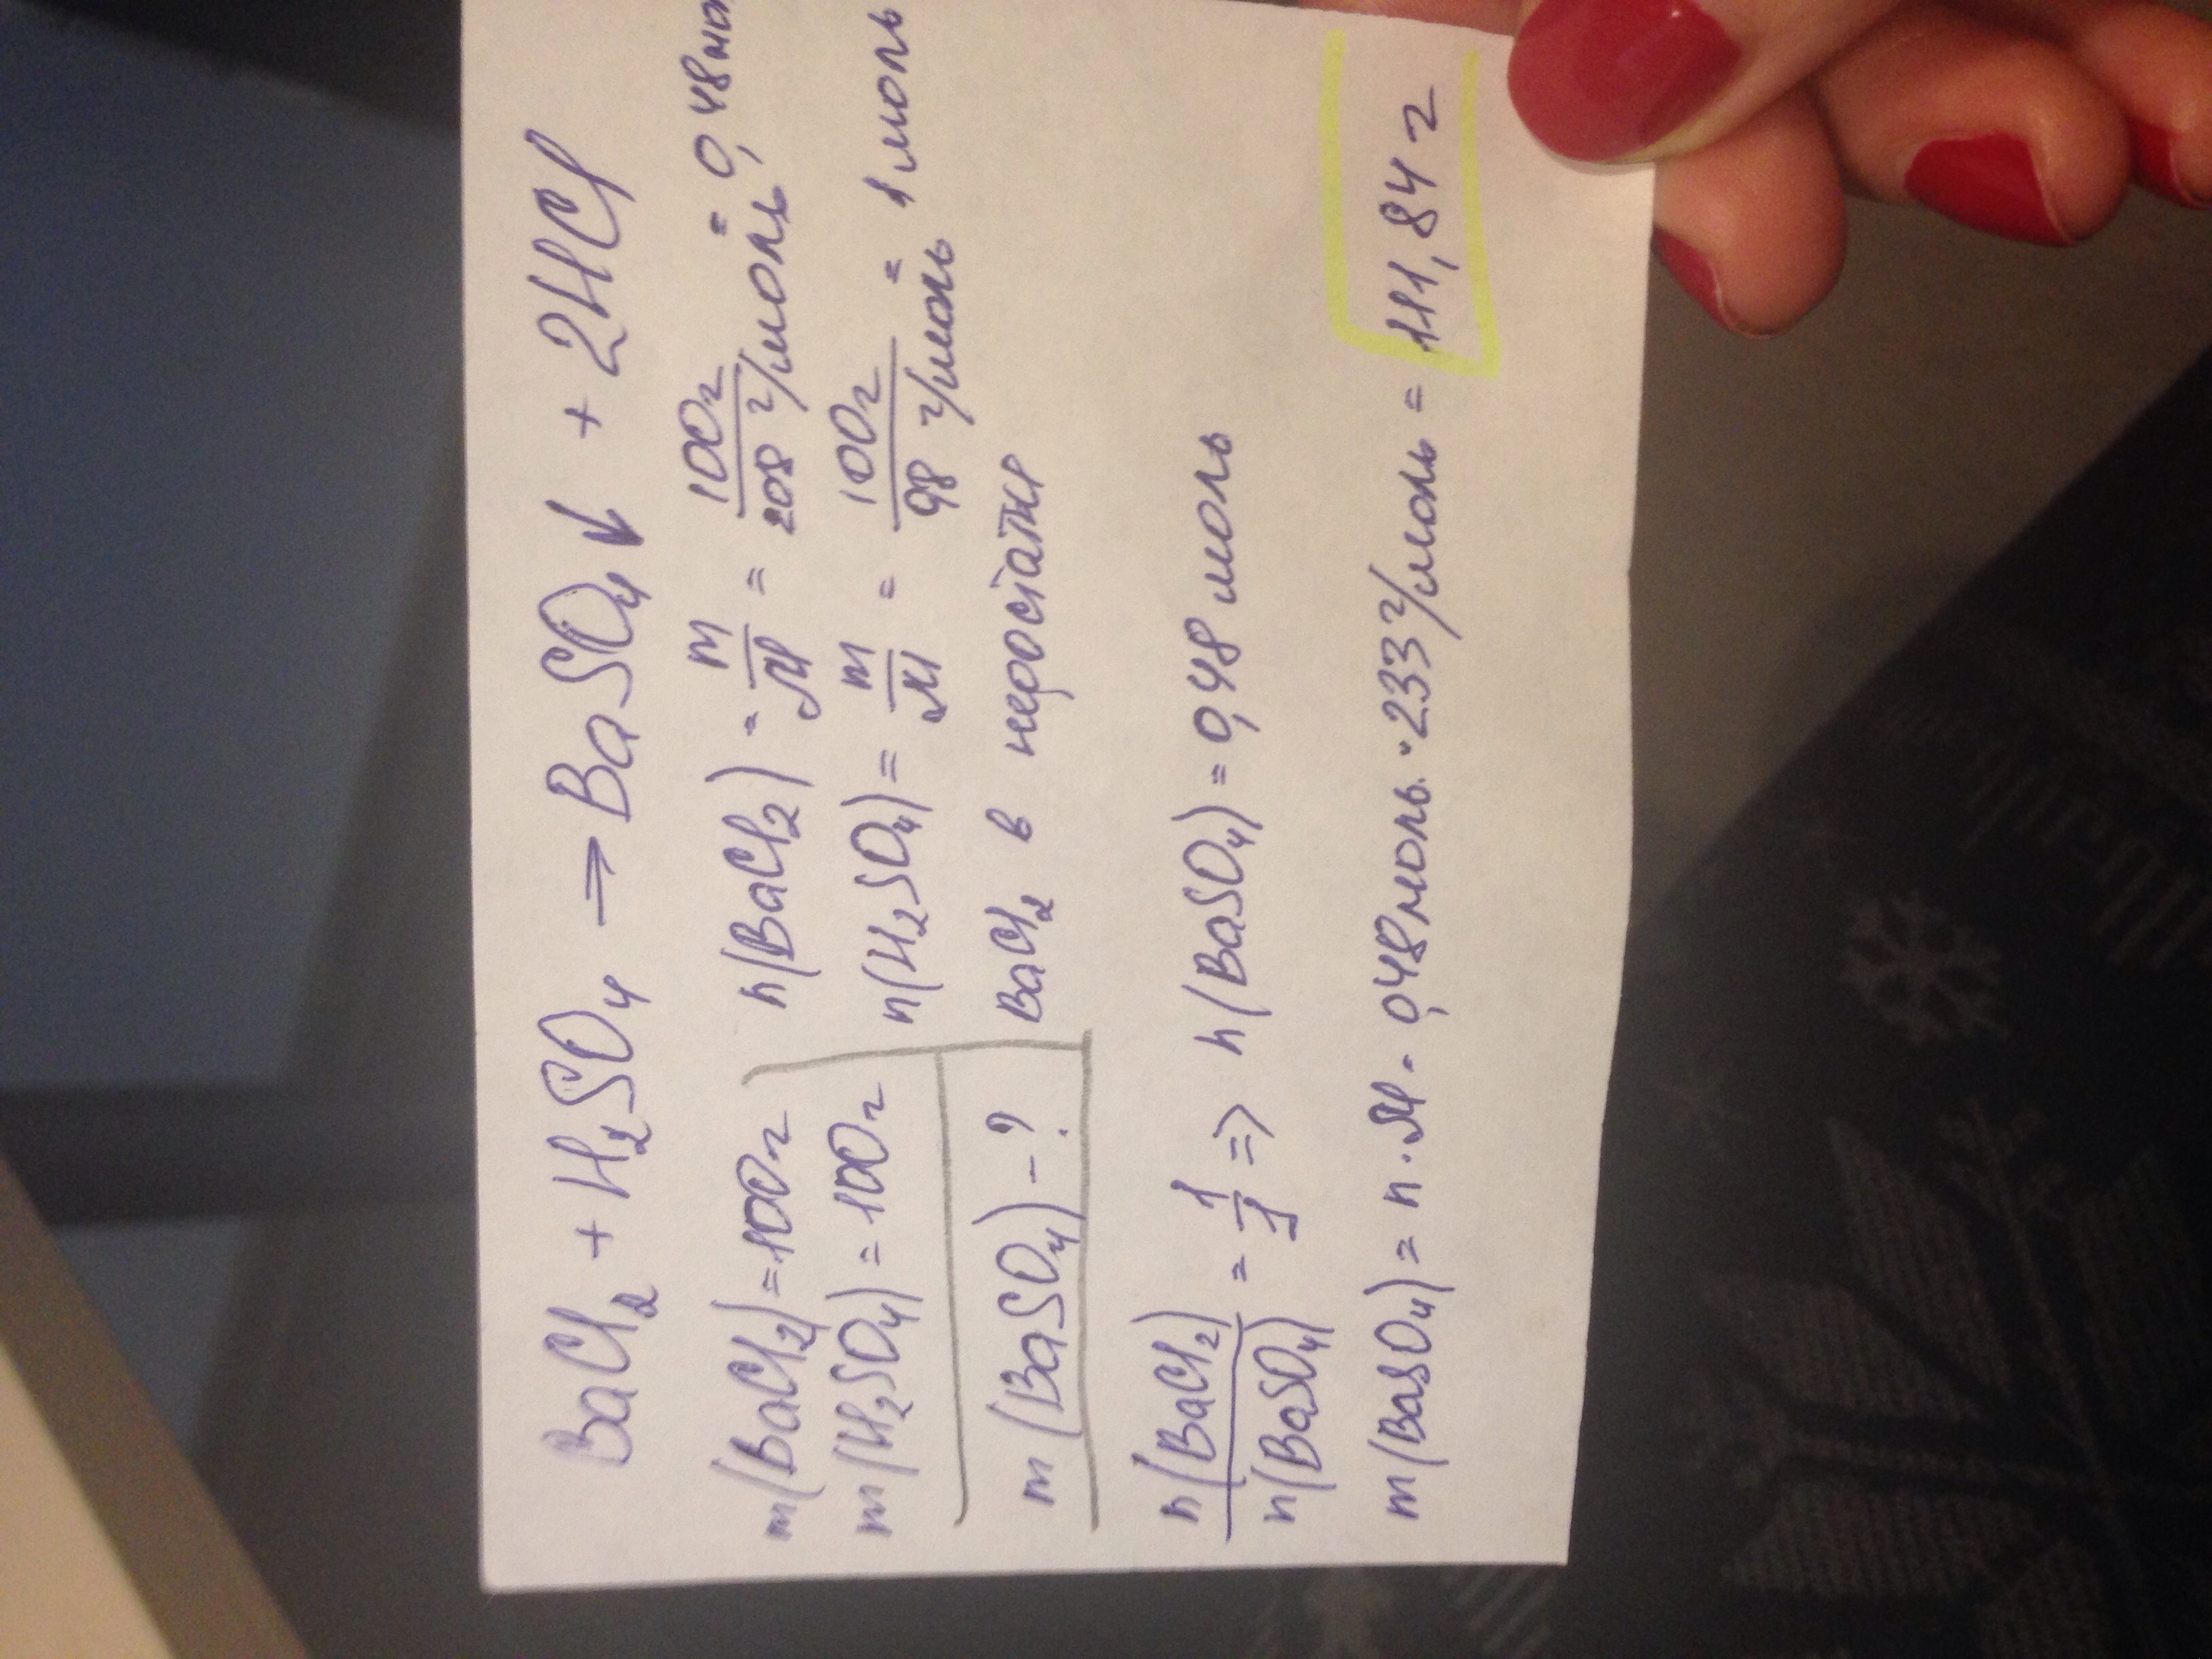 BaCl₂ + H₂SO₄ → BaSO₄↓ + 2HCl
m(BaCl₂) = 100г
m(H₂SO₄) = 100г
m(BaSO₄) – ?
n(BaCl₂) = m/M = 100г/208 г/моль = 0,48мо
n(H₂SO₄) = m/M = 100г/98 г/моль = 1 моль
BaCl₂ в недостатке
n(BaCl₂)/n(BaSO₄) = 1/1 => n(BaSO₄) = 0,48 моль
m(BaSO₄) = n · M = 0,48 моль · 233 г/моль = 111,84 г